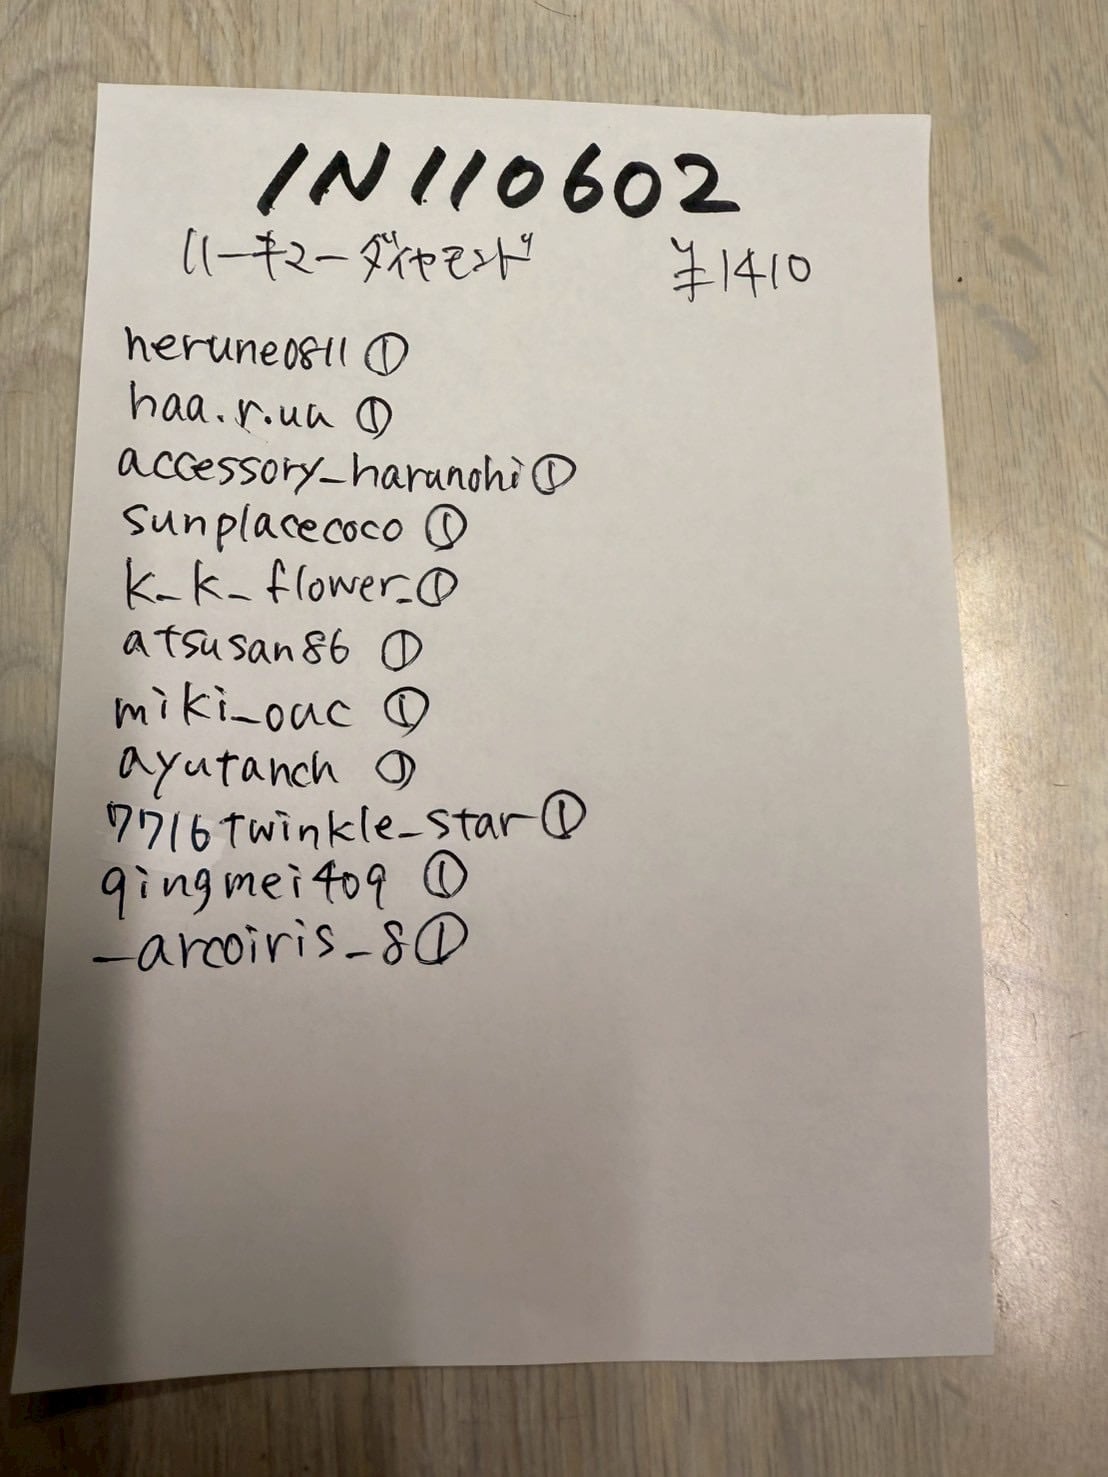 IN110602
ハーキマーダイヤモンド ¥1410
herune0811 ①
haa.r.ua ①
accessory_harunohi ①
sunplacecoco ①
k_k_flower_ ①
atsusan86 ①
miki_ouc ①
ayutanch ①
7716twinkle_star ①
qingmei409 ①
_arcoiris_8 ①